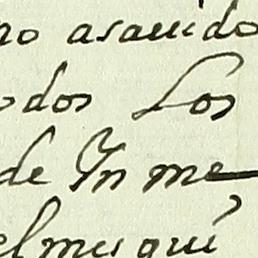 no asauido
odos Los
de In me
el mui qui